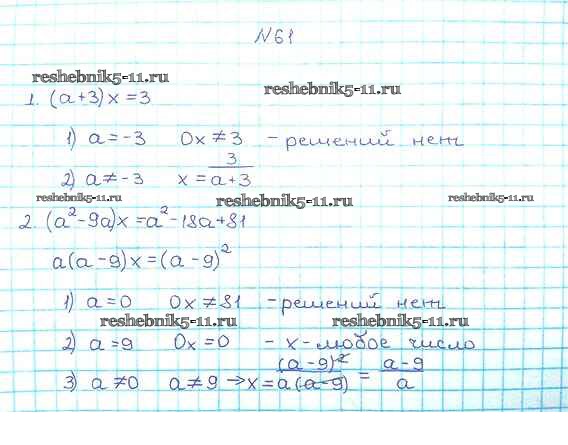 №61
reshebnik5-11.ru
reshebnik5-11.ru
1. (a+3)x=3
1) a=-3 0x≠3 - решений нет
2) a≠-3 x=3/(a+3)
reshebnik5-11.ru
reshebnik5-11.ru
reshebnik5-11.ru
2. (a²-9a)x=a²-18a+81
a(a-9)x=(a-9)²
1) a=0 0x≠81 - решений нет
reshebnik5-11.ru
reshebnik5-11.ru
2) a=9 0x=0 - x-любое число
3) a≠0 a≠9 → x=(a-9)²/a(a-9) = (a-9)/a